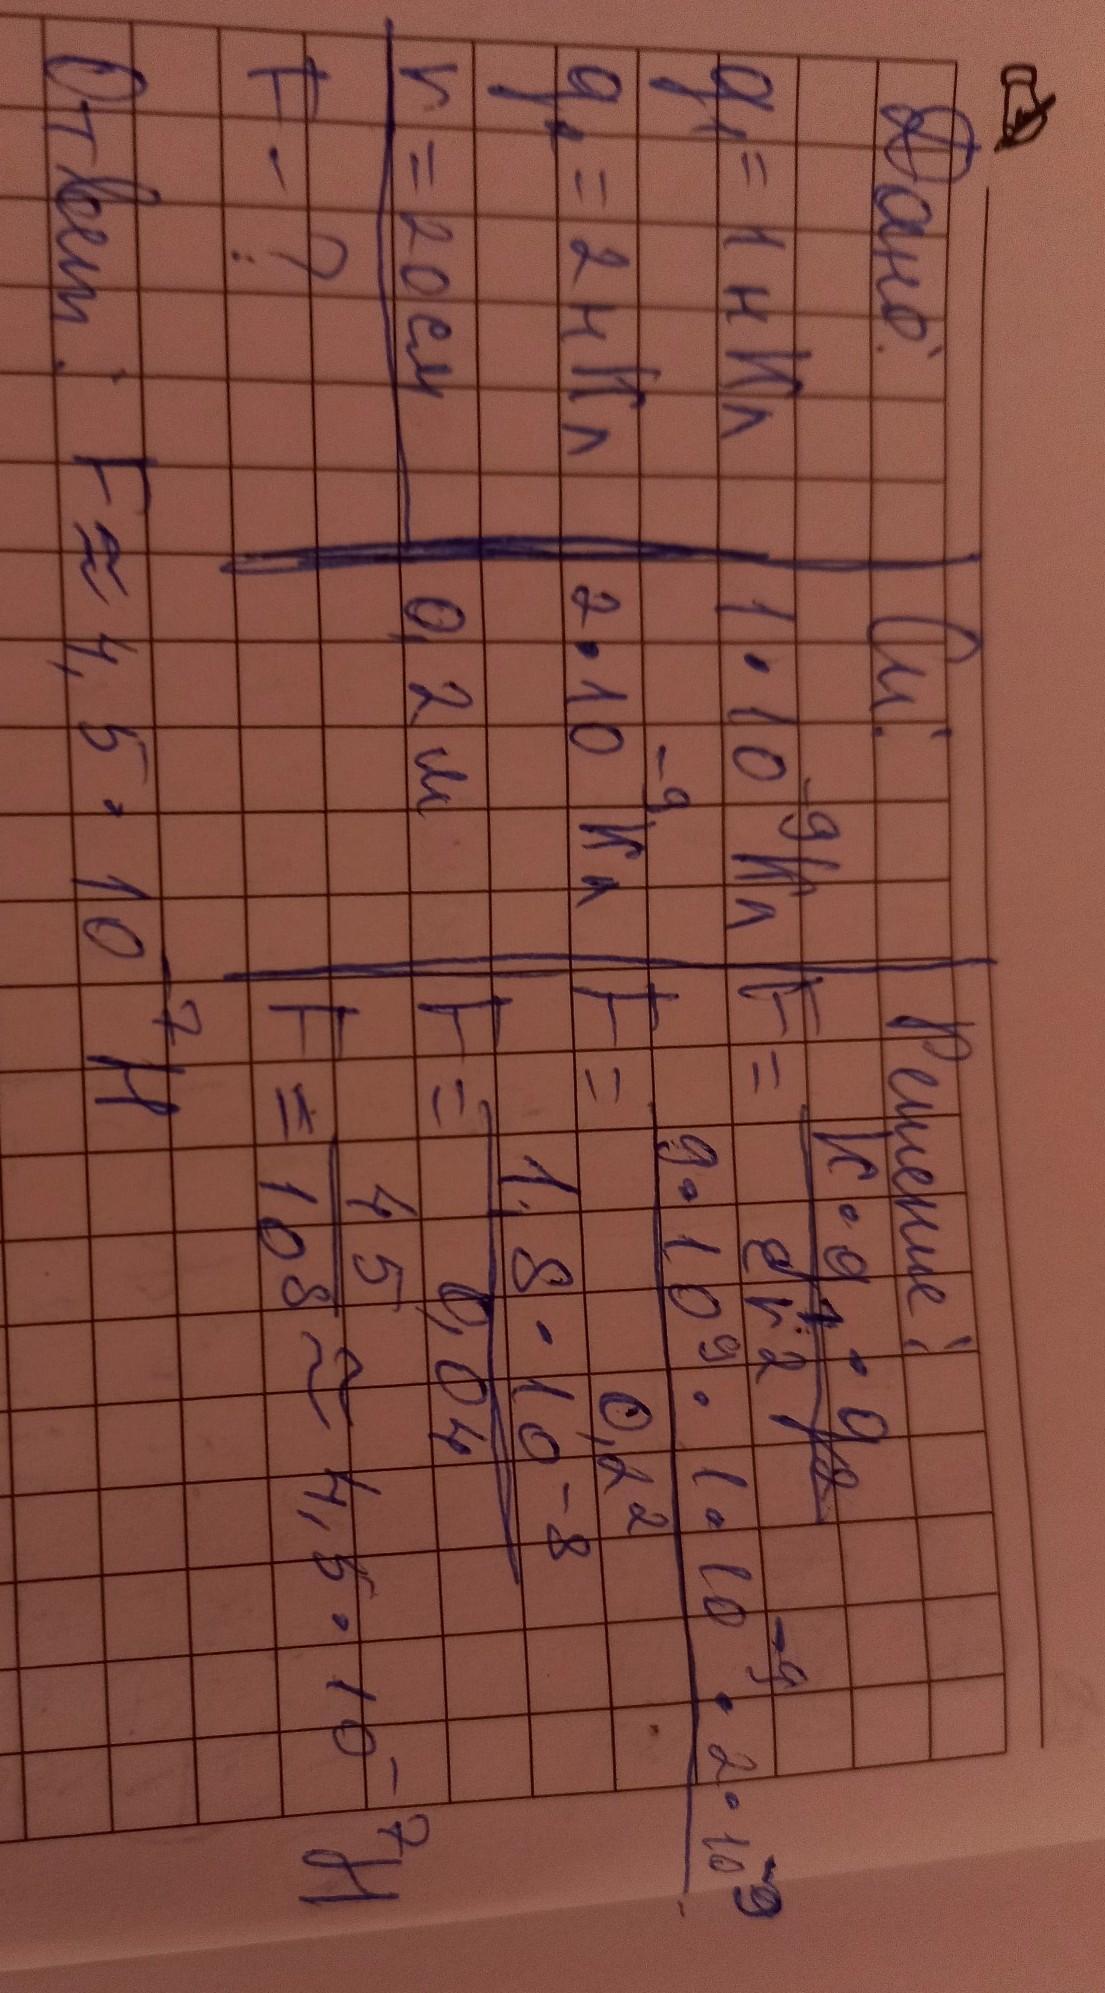 Дано:
q₁ = 1 нКл
q₂ = 2 нКл
r = 20см
F - ?
Си:
1 · 10⁻⁹ Кл
2 · 10⁻⁹ Кл
0,2 м
Решение:
F = k · q₁ · q₂ / r²
F = 9 · 10⁹ · 1 · 10⁻⁹ · 2 · 10⁻⁹ / 0,2²
F = 1,8 · 10⁻⁸ / 0,04
F = 45 / 10⁸ ≈ 4,5 · 10⁻⁷ Н
Ответ: F ≈ 4,5 · 10⁻⁷ Н